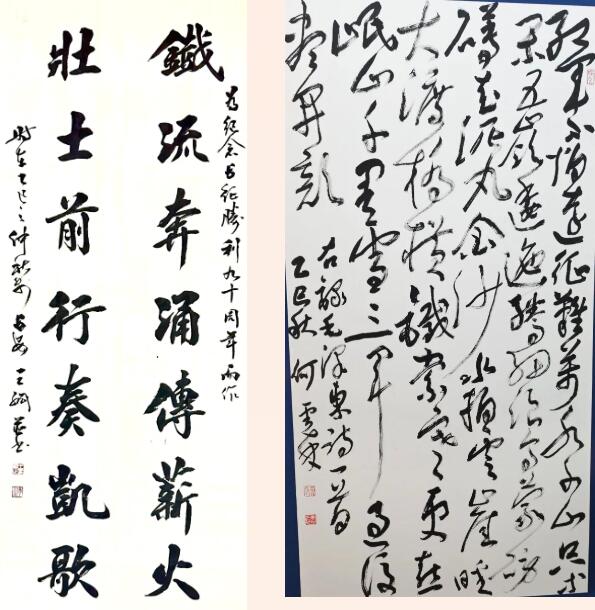 为纪念长征勝利九十周年而作
鐵流奔涌傳薪火
壯士前行奏凱歌
时在乙巳之仲秋于长安王
红军不怕遠征難萬水千山只等
閑五嶺逶迤騰細浪烏蒙磅
礴走泥丸金沙水拍雲崖暖
大渡橋橫鐵索寒更喜
岷山千里雪三軍過後
盡開顏
右錄毛澤東詩一首
乙巳秋何